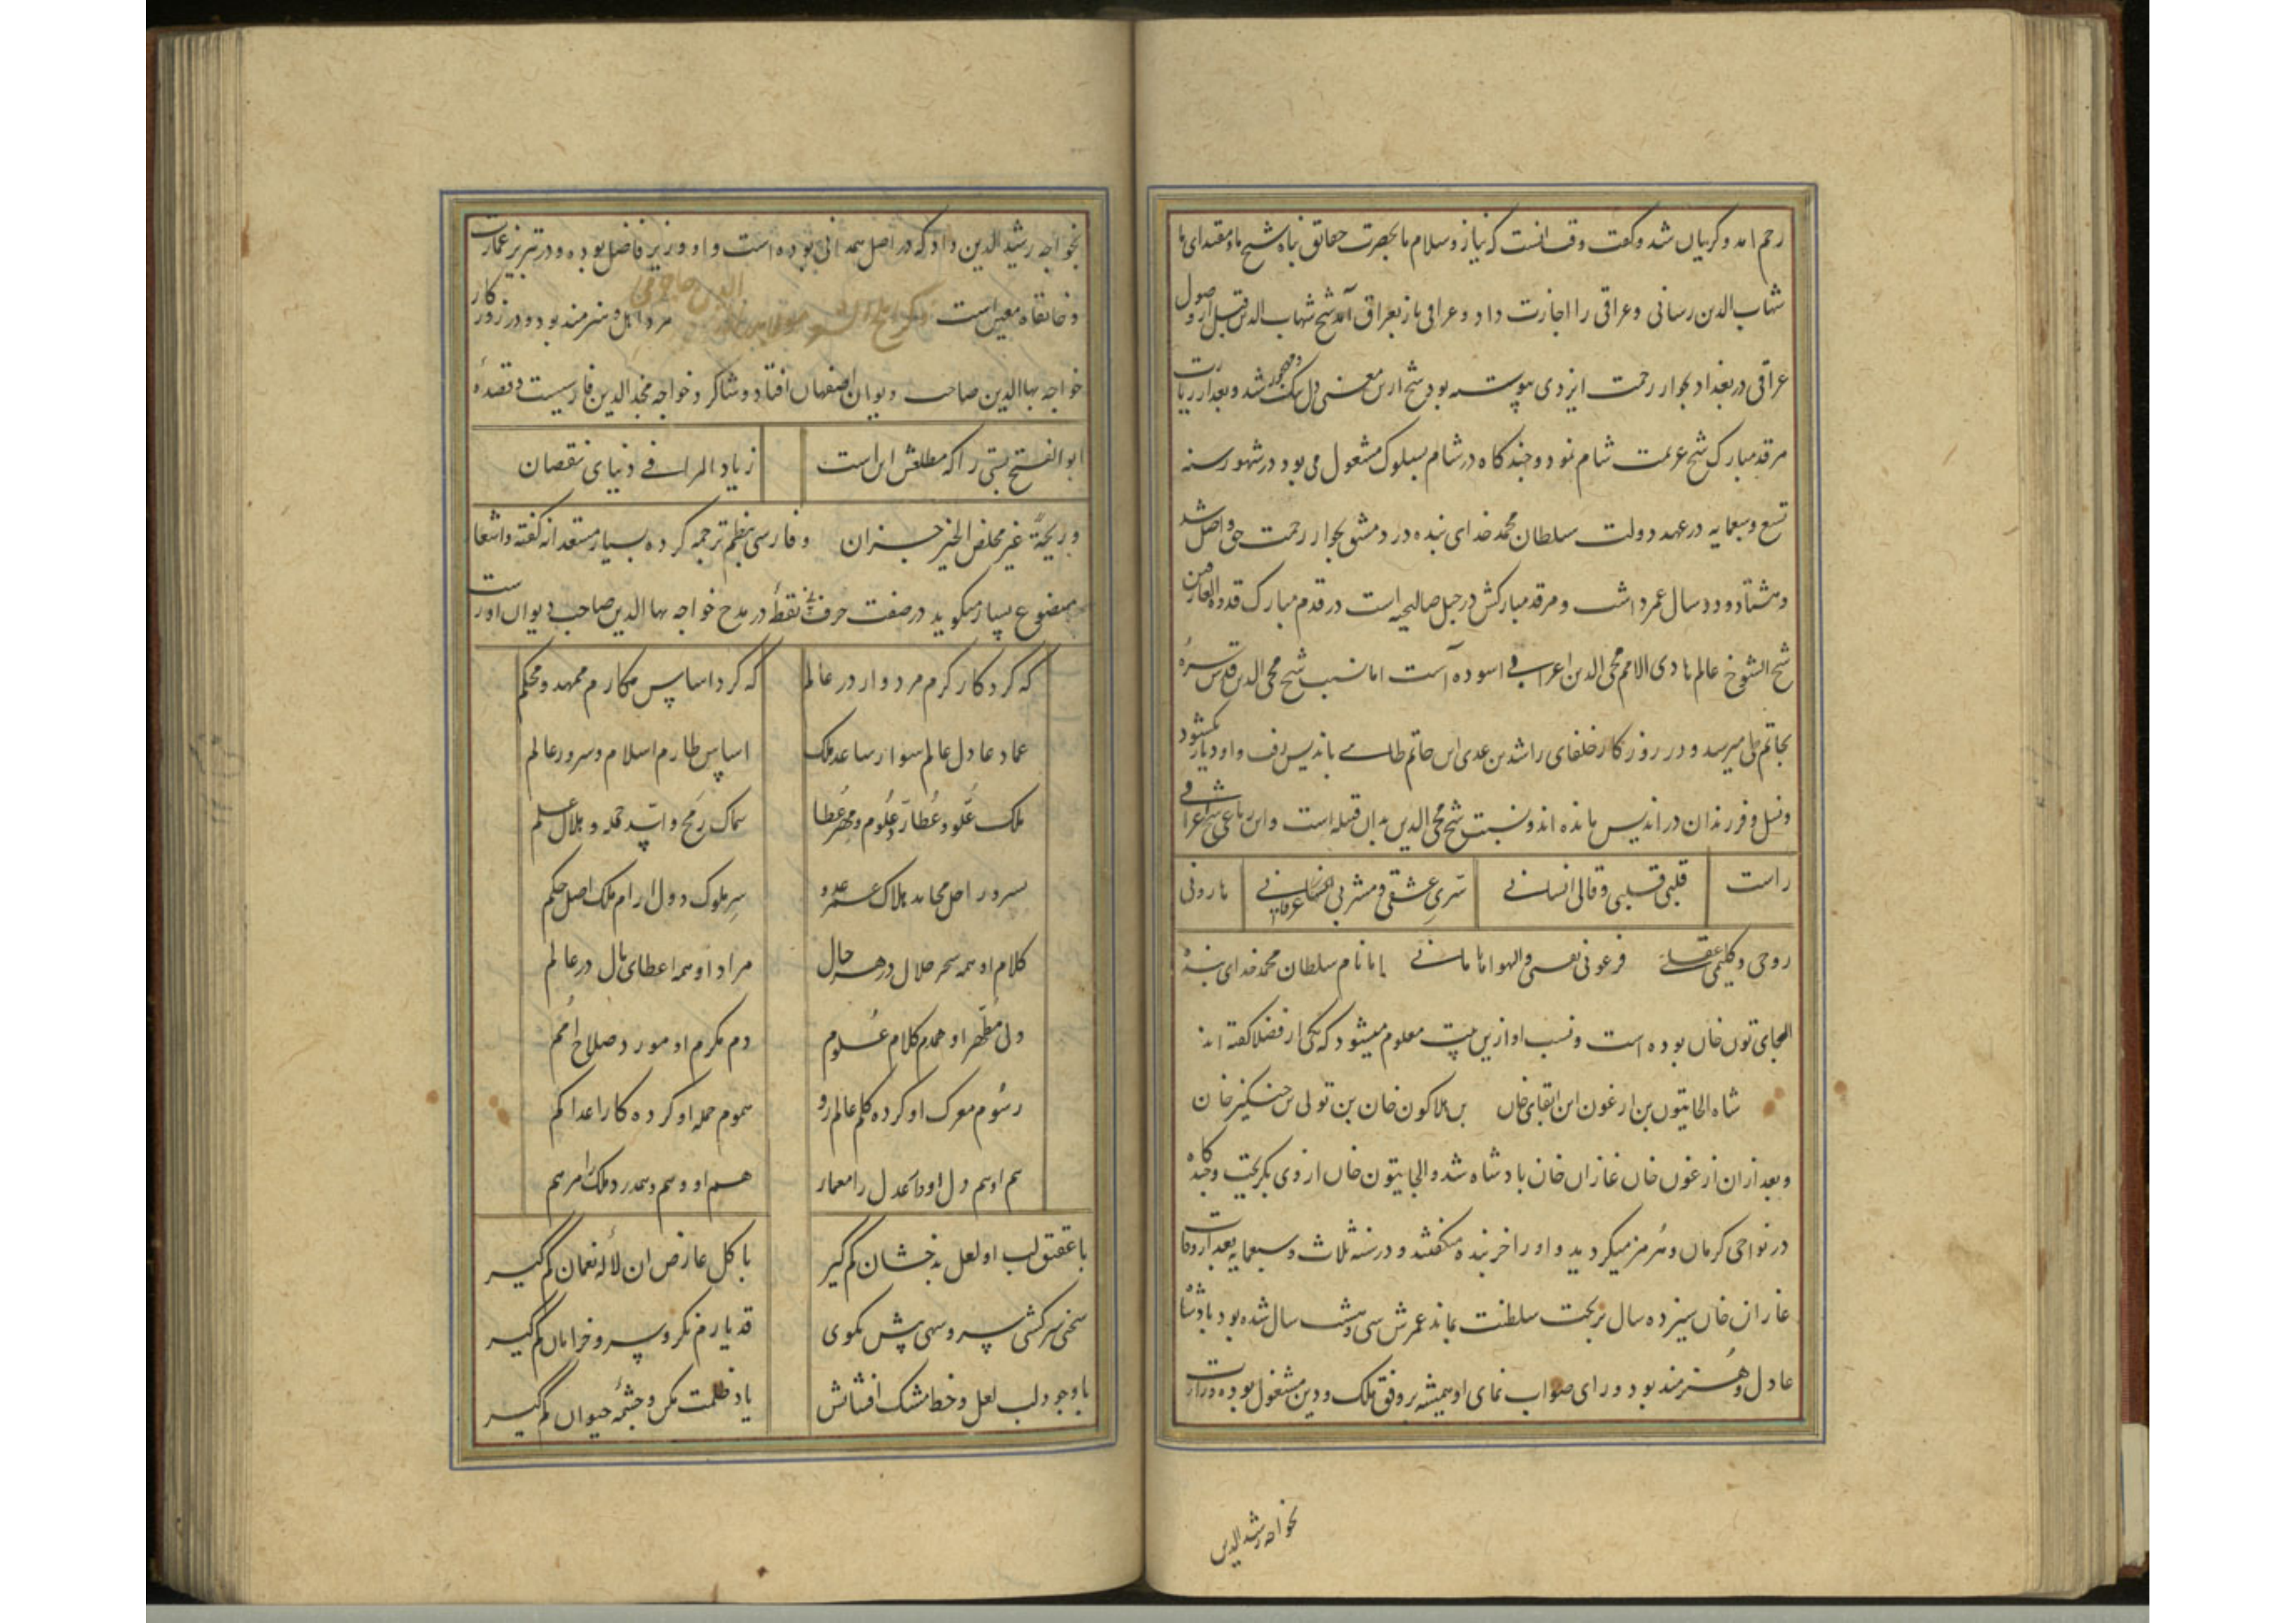 رحم امد و کریان شد و کفت وقت انست که نیاز و سلام ما بحضرت حقائق پناه شیخ ما و مقتدای ما
شهاب الدین رسانی و عراقی را اجازت داد و عراقی باز بعراق آمد شیخ شهاب الدین قبل از وصول
عراقی در بغداد بجوار رحمت ایزدی پیوسته بود شیخ ازین معنی دل تنک و مهجور شد و بعد از زیارت
مرقد مبارک شیخ عزیمت شام نمود و چند کاه در شام بسلوک مشغول می بود در شهور سنه
تسع و سبعمایه در عهد دولت سلطان محمد خدای بنده در دمشق بجوار رحمت حق واصل شد
و هشتاد و دو سال عمر داشت و مرقد مبارکش در جبل صالحیه است در قدم مبارک قدوة العارفین
شیخ الشیوخ عالم هادی الامم محی الدین اعرابی اسوده است اما نسب شیخ محی الدین قدس سره
بحاتم طی میرسد و در روزکار خلفای راشدین عدی ابن حاتم طایی باندلیس رفت و او دیار بکشود
و نسل و فرزندان در اندلیس مانده اند و نسبت شیخ محی الدین بدان قبیله است و این رباعی شیخ عراقی
راست قلبی قلبی و قالی انسانی سری عشقی و مشربی عرفانی هارونی
روحی و کلیمی عقلی فرعونی نفسی و الهوا هامانی اما نام سلطان محمد خدای بنده
الجای تون خان بوده است و نسب او ازین بیت معلوم میشود که یکی از فضلا کفته اند
شاه الجایتون بن ارغون ابن ابقای خان بن هلاکون خان بن تولی بن چنکیز خان
و بعد ازان ارغون خان غازان خان بادشاه شد و الجایتون خان از وی بکریخت و چند کاه
در نواحی کرمان و هرمز میکردید و او را خربنده میکفتند و در سنه ثلاث و سبعمایه بعد از وفات
غازان خان سیزده سال بر تخت سلطنت بماند عمرش سی و هشت سال شده بود بادشاه
عادل و هنرمند بود و رای صواب نمای او همیشه بر وفق ملک و دین مشغول بوده وزارت
بخواجه رشید الدین
بخواجه رشید الدین داد که در اصل همدانی بوده است و او وزیر فاضل بوده و در تبریز عمارت
و خانقاه معین است مرد اهل و هنرمند بود و در روزکار
خواجه بها الدین صاحب دیوان اصفهان افتاد و شاکرد خواجه مجد الدین فارسیست و قصیدهٔ
ابو الفتح بستی را که مطلعش این است زیاد المراء فی دنیای نقصان
و ربحهٔ غیر محض الخیر خسران و فارسی بنظم ترجمه کرده بسیار مستعدانه کفته و اشعار
مصنوع بسیار میکوید در صفت حرف بی نقطه در مدح خواجه بها الدین صاحب دیوان او راست
که کرد کار کرم مردوار در عالم که کرد اساس مکارم ممهد و محکم
عماد عادل عالم سوار ساعد ملک اساس طارم اسلام و سرور عالم
ملک علو و عطارد علوم و مهر عطا سماک رمح و اسد حمله و هلال علم
سرور اهل محامد هلاک عمر عدو سر ملوک دول ارام ملک اصل حکم
کلام او همه سحر حلال در هر حال مراد او همه اعطای مال در عالم
دل مطهر او همدم کلام علوم دم مکرم او مورد صلاح امم
رسوم معرک او کرده کم عالم رو سموم حمله او کرده کار اعدا کم
هم او هم دل او داده عدل را معمار هم او و هم دهد درد ملک را مرهم
با عقیق لب او لعل بدخشان کم کیر با کل عارض ان لاله نعمان کم کیر
سخن سرکشی سرو سهی پیش مکوی قد یارم نکر و سرو خرامان کم کیر
با وجود لب لعل و خط مشک افشانش یاد ظلمت مکن و چشمه حیوان کم کیر